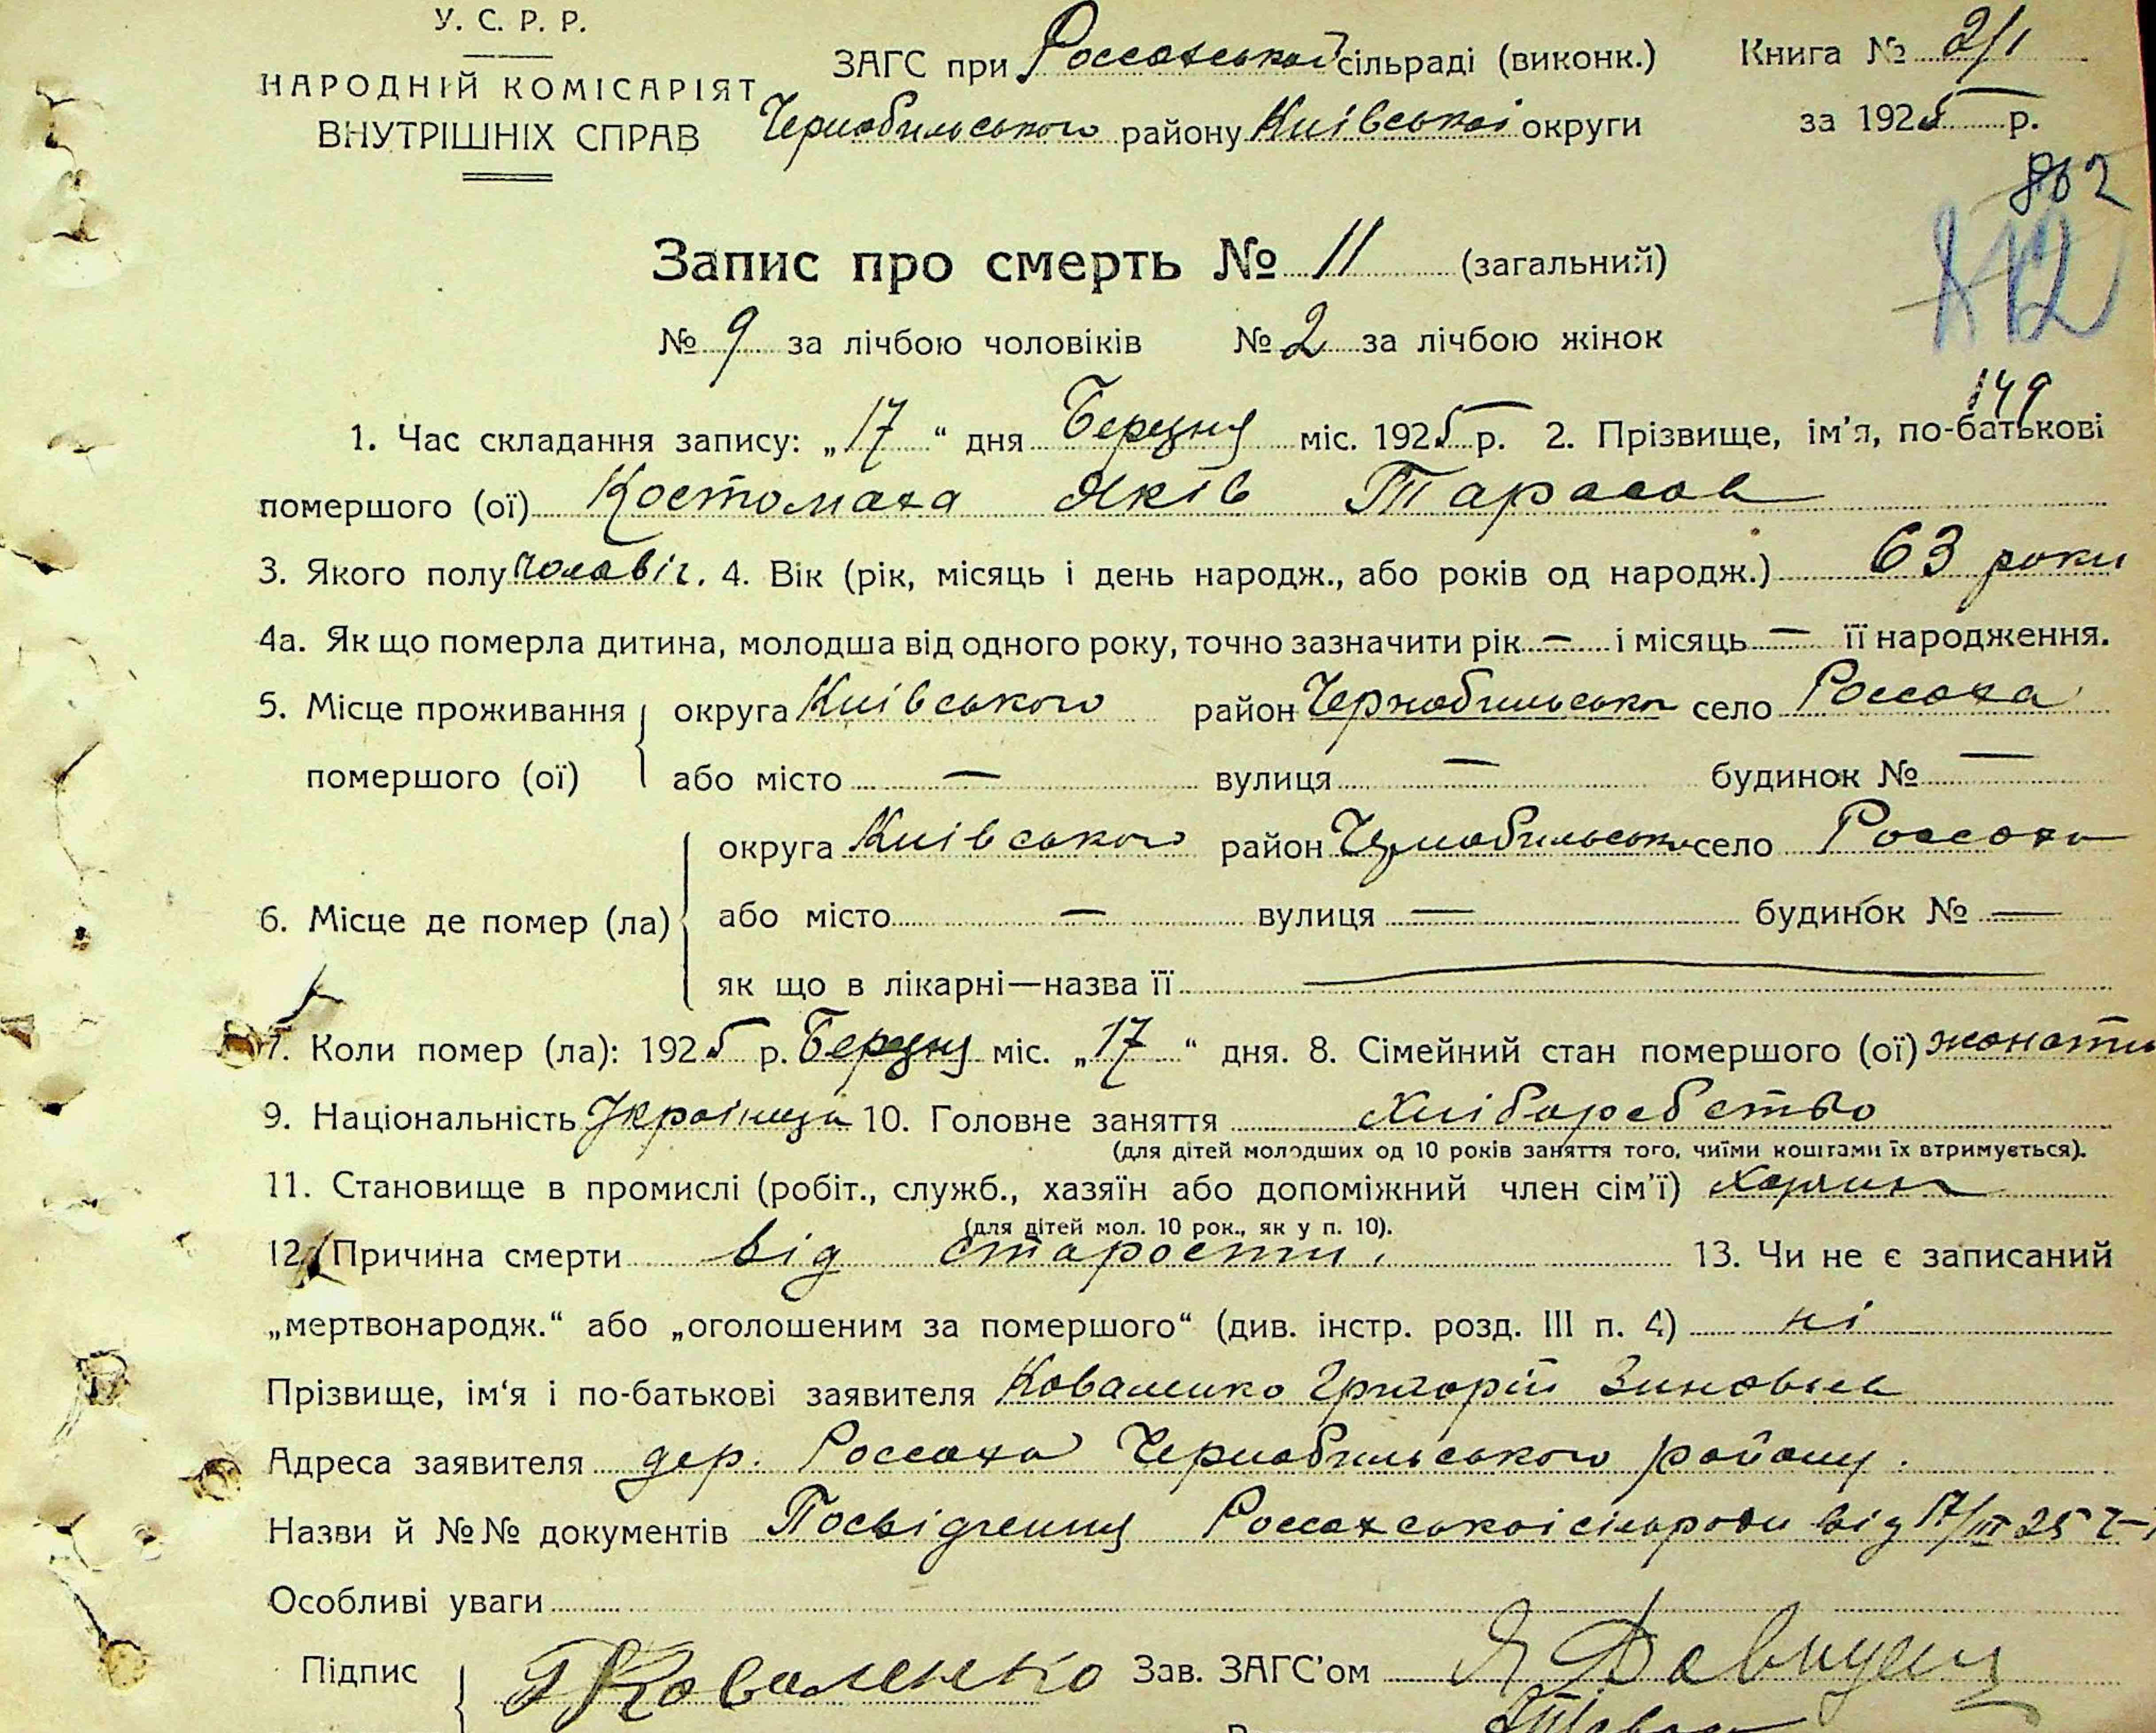 У. С. Р. Р.
НАРОДНІЙ КОМІСАРІЯТ
ВНУТРІШНІХ СПРАВ
ЗАГС при Россохської сільраді (виконк.)
Чернобильського району Київської округи
Книга № 2/1
за 1925 р.
802
149
Запис про смерть № 11 (загальний)
№ 9 за лічбою чоловіків № 2 за лічбою жінок
1. Час складання запису: „17“ дня Березня міс. 1925 р. 2. Прізвище, ім'я, по-батькові
помершого (ої) Костомаха Яків Тарасов
3. Якого полу чоловіч. 4. Вік (рік, місяць і день народж., або років од народж.) 63 роки
4а. Як що померла дитина, молодша від одного року, точно зазначити рік — і місяць — її народження.
5. Місце проживання округа Київського район Чернобильсько село Россоха
помершого (ої) або місто — вулиця — будинок № —
округа Київського район Чернобильсько село Россоха
6. Місце де помер (ла) або місто — вулиця — будинок № —
як що в лікарні—назва її —
7. Коли помер (ла): 1925 р. Березня міс. „17“ дня. 8. Сімейний стан помершого (ої) жонати
9. Національність Українець 10. Головне заняття Хліборобство
(для дітей молодших од 10 років заняття того, чиїми коштами їх втримується).
11. Становище в промислі (робіт., служб., хазяїн або допоміжний член сім'ї) Хазяин
(для дітей мол. 10 рок., як у п. 10).
12. Причина смерти від старости. 13. Чи не є записаний
„мертвонародж.“ або „оголошеним за помершого“ (див. інстр. розд. III п. 4) ні
Прізвище, ім'я і по-батькові заявителя Коваленко Григорій Зиновьев
Адреса заявителя дер. Россоха Чернобильського району.
Назви й №№ документів Посвідчення Россохської сільради від 17/III 25
Особливі уваги
Підпис ГКоваленко Зав. ЗАГС'ом Я Давидец